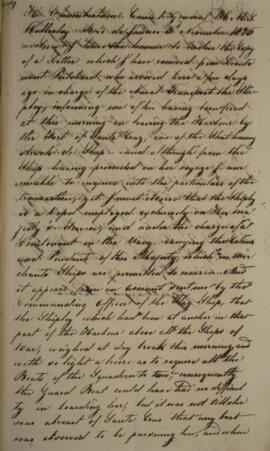 Wellesley Rio de Janeiro 3 November 1820
I have the honour to enclose the Copy
of a Letter which I have received from Lieute-
nant Pritchard who arrived here a few days
ago in charge of the Naval Transport the
Shipley, informing me of her having been fired
at this morning on leaving the Harbour by
the Fort of Santa Cruz, one of the Shot having
struck the Ship and although from the
Ship having proceeded on her voyage I am
unable to enquire into the particulars of the
transaction, yet I must observe that the Shipley
is a Vessel employed exclusively in His Ma-
jesty's Service and under the charge of a
Lieutenant in the Navy carrying the Colours
and Pendant of His Majesty, which no Mer-
chant Ships are permitted to wear. And
it appears from an account given by the
Commanding Officer of the Flag Ship, that
the Shipley which had been at anchor in that
part of the Harbour above all the Ships of
War, weighed at day break this morning and
with so light a breeze as to require all the
Boats of the Squadron to tow; consequently
the Guard Boat could have had no difficul
ty in boarding her, but it was not till she
was abreast of Santa Cruz that any boat
was observed to be pursuing her, and when